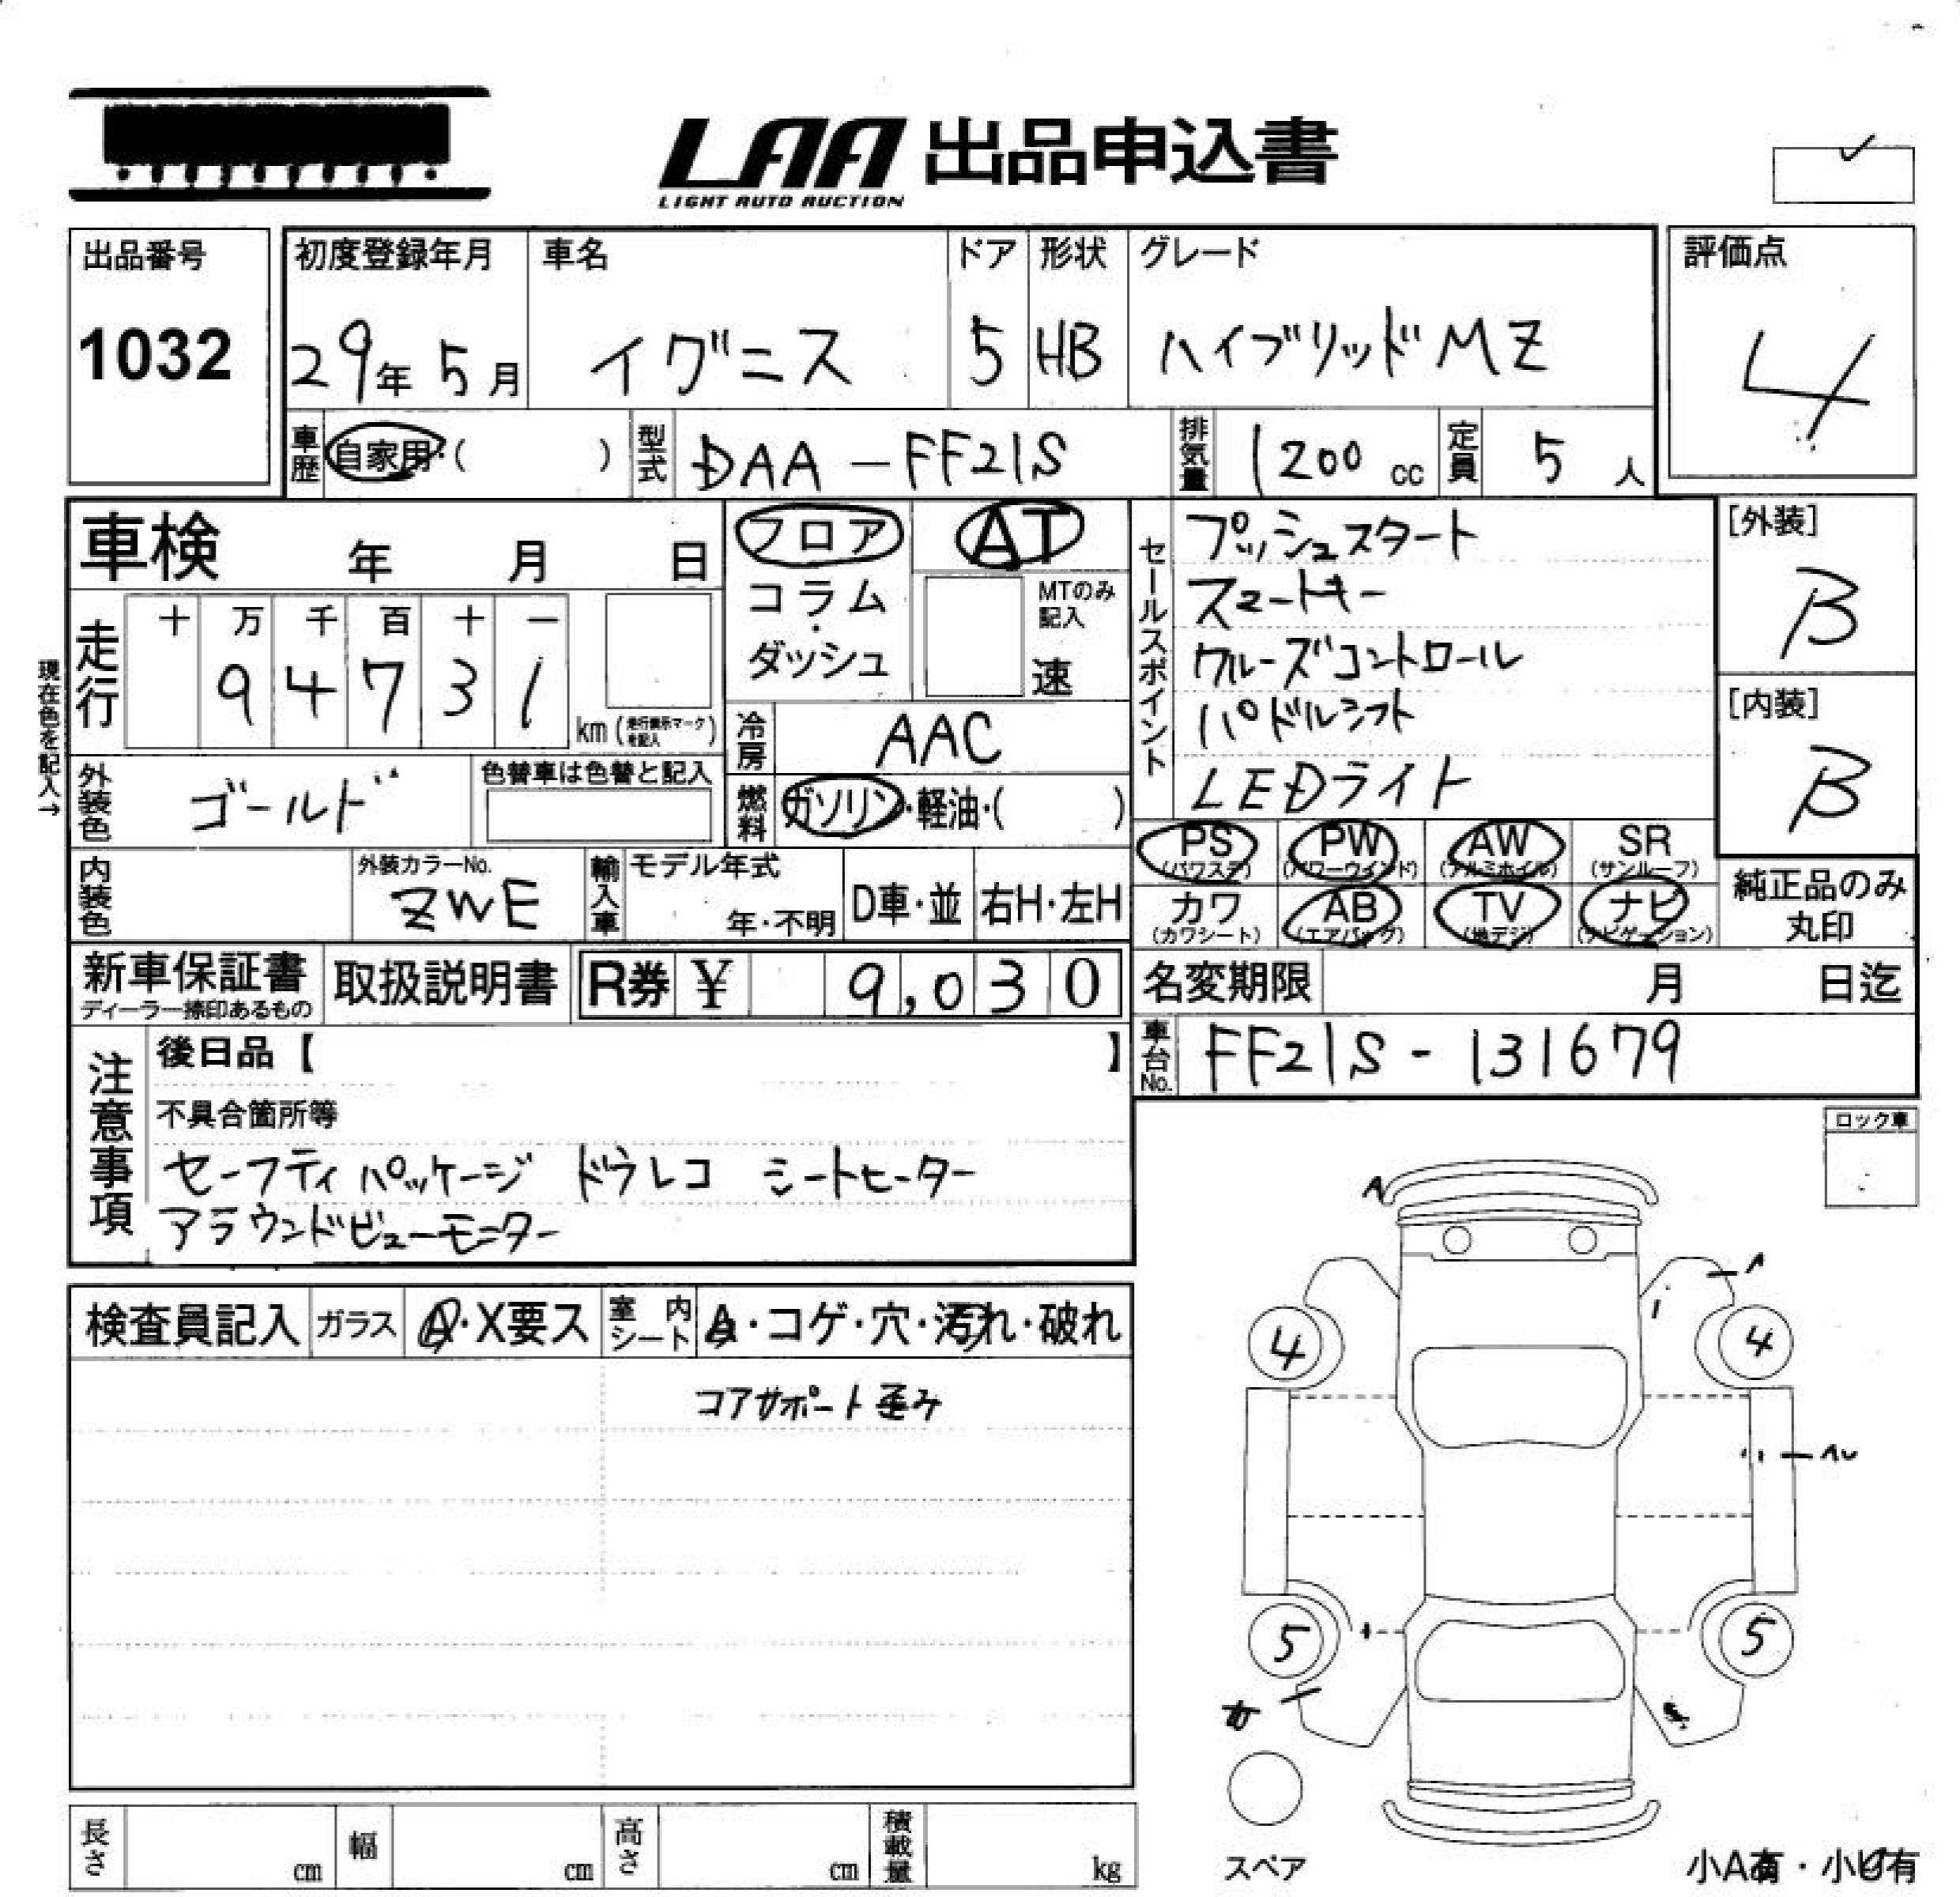 LAA 出品申込書
LIGHT AUTO AUCTION
出品番号
1032
初度登録年月
29年 5月
車名
イグニス
ドア
5
形状
HB
グレード
ハイブリッドMZ
評価点
4
車歴
自家用・( )
型式
DAA-FF21S
排気量
1200 cc
定員
5 人
車検 年 月 日
フロア
コラム・ダッシュ
AT
MTのみ記入
速
セールスポイント
プッシュスタート
スマートキー
クルーズコントロール
パドルシフト
LEDライト
[外装]
B
[内装]
B
現在色を記入→
走行
十 万 千 百 十 一
9 4 7 3 1
km(走行表示マークを記入)
冷房
AAC
外装色
ゴールド
色替車は色替と記入
燃料
ガソリン・軽油・( )
PS (パワステ)
PW (パワーウインド)
AW (アルミホイル)
SR (サンルーフ)
カワ (カワシート)
AB (エアバッグ)
TV (地デジ)
ナビ (ナビゲーション)
純正品のみ
丸印
内装色
外装カラーNo.
ZWE
輸入車
モデル年式
年・不明
D車・並
右H・左H
新車保証書
ディーラー捺印あるもの
取扱説明書
R券 ¥ 9,030
名変期限 月 日迄
車台No.
FF21S-131679
注意事項
後日品【 】
不具合箇所等
セーフティパッケージ ドラレコ シートヒーター
アラウンドビューモニター
ロック車
検査員記入
ガラス
A・X要ス
室内シート
A・コゲ・穴・汚れ・破れ
コアサポート歪み
A
4
4
5
5
スペア
小A有・小U有
長さ cm
幅 cm
高さ cm
積載量 kg